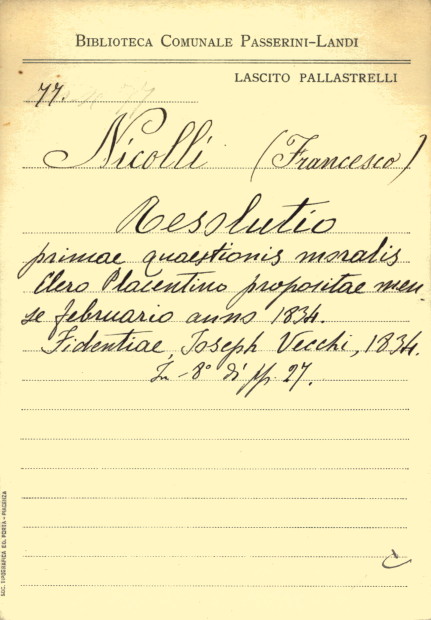 BIBLIOTECA COMUNALE PASSERINI-LANDI
LASCITO PALLASTRELLI
77.
Nicolli (Francesco)
Resolutio
primae quaestionis moralis
Clero Placentino propositae men
se februario anno 1834.
Fidentiae, Joseph Vecchi, 1834.
In-8° di pp. 27.
SOC. TIPOGRAFICA ED. PORTA - PIACENZA